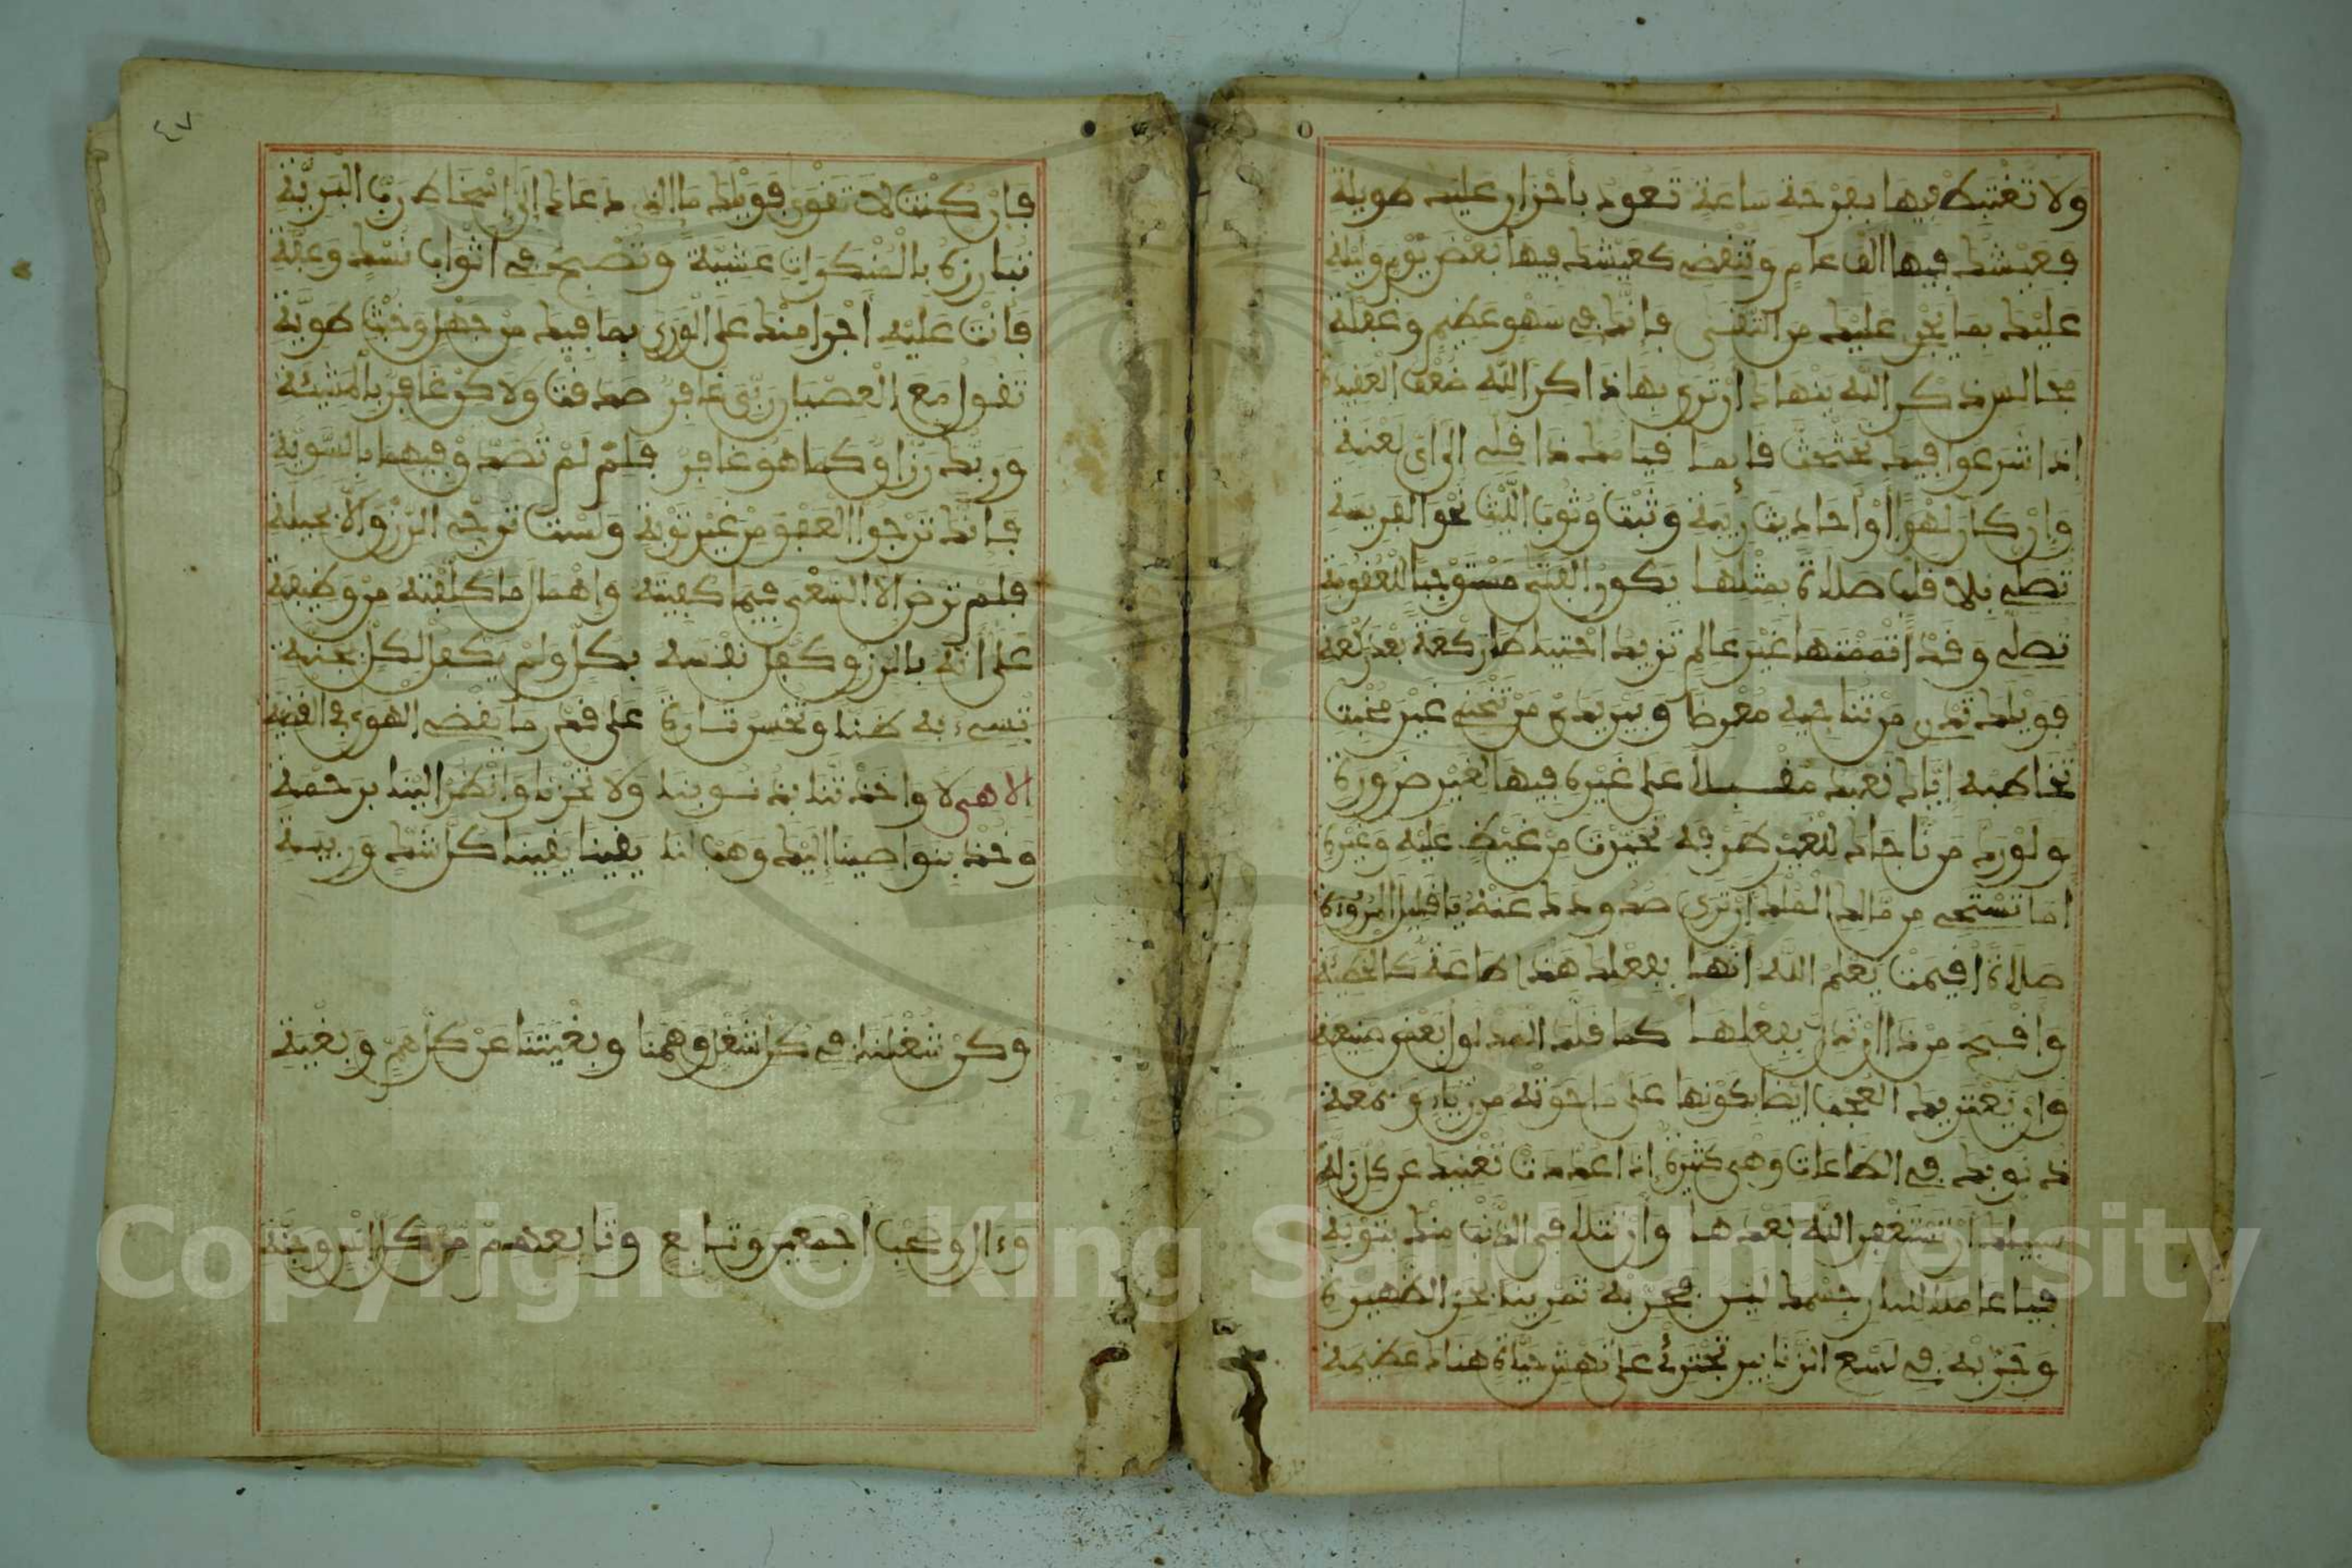 ولا تغتبط فيها بفرحة ساعة تعود بأحزان عليك طويلة
فعيشك فيها ألف عام وتنقضي كعيشك فيها بعض يوم وليلة
عليك بما يجري عليك من التقى فإنك في سهو عظيم وغفلة
مجالس ذكر الله ينهاك أن ترى بها ذاكرا لله ضعف العقيدة
إذا شرعوا فيها تحثحثت قائما قيامك ذا قل لي إلى أي لعنة
وإن كان لهوا أو أحاديث ريبة وثبت وثوب الليث نحو الفريسة
تصلي بلا قلب صلاة بمثلها يكون الفتى مستوجبا للعقوبة
تصلي وقد أتممتها غير عالم تزيد احتياطا ركعة بعد ركعة
فويلك تدري من تناجيه معرضا وبين يدي من تنحني غير مخبت
تخاطبه إياك نعبد مقبلا على غيره فيها لغير ضرورة
ولو رد من ناجاك للغير طرفه تميزت من غيظ عليه وغيرة
أما تستحي من مالك الملك أن ترى صدودك عنه يا قليل المروءة
صلاة أقيمت يعلم الله أنها بفعلك هذا طاعة كالخطيئة
وأقبح من ذا أن تدل بفعلها كما قلد المدلول بعض صنيعة
وأن يعتريك العجب أيضا بكونها على ما حوته من رياء وسمعة
ذنوبك في الطاعات وهي كثيرة إذا عددت تغنيك عن كل زلة
سبيلك أن تستغفر الله بعدها وأن تتلافى الذنب منك بتوبة
فيا عاملا للنار جسمك لين فجربه تمرينا بحر الظهيرة
وجربه في لسع الزنابير تجترئ على نهش حيات هناك عظيمة
٤٧
فإن كنت لا تقوى فويلك ما الذي دعاك إلى إسخاط رب البرية
تبارزه بالمنكرات عشية وتصبح في أثواب نسك وعفة
فأنت عليه أجرا منك على الورى بما فيك من جهل وخبث طوية
تقول مع العصيان ربي غافر صدقت ولاكن غافر بالمشيئة
وربك رزاق كما هو غافر فلم لم تصدق فيهما بالسوية
فإنك ترجو العفو من غير توبة ولست ترجي الرزق إلا بحيلة
فلم ترض إلا السعي فيما كفيته وإهمال ما كلفته من وظيفة
على أنه بالرزق كفل نفسه بكل ولم يكفل لكل بجنة
تسيء به ظنا وتحسن تارة على قدر ما يقضي الهوى في القضية
إلاهي لا واخذتنا بذنوبنا ولا تخزنا وانظر إلينا برحمة
وخذ بنواصينا إليك وهب لنا يقينا يقينا كل شك وريبة
وكن شغلنا في كل شغل وهمنا وبغيتنا عن كل هم وبغية
وءال وصحب أجمعين وتابع وتابعهم من كل إنس وجنة
Copyright © King Saud University